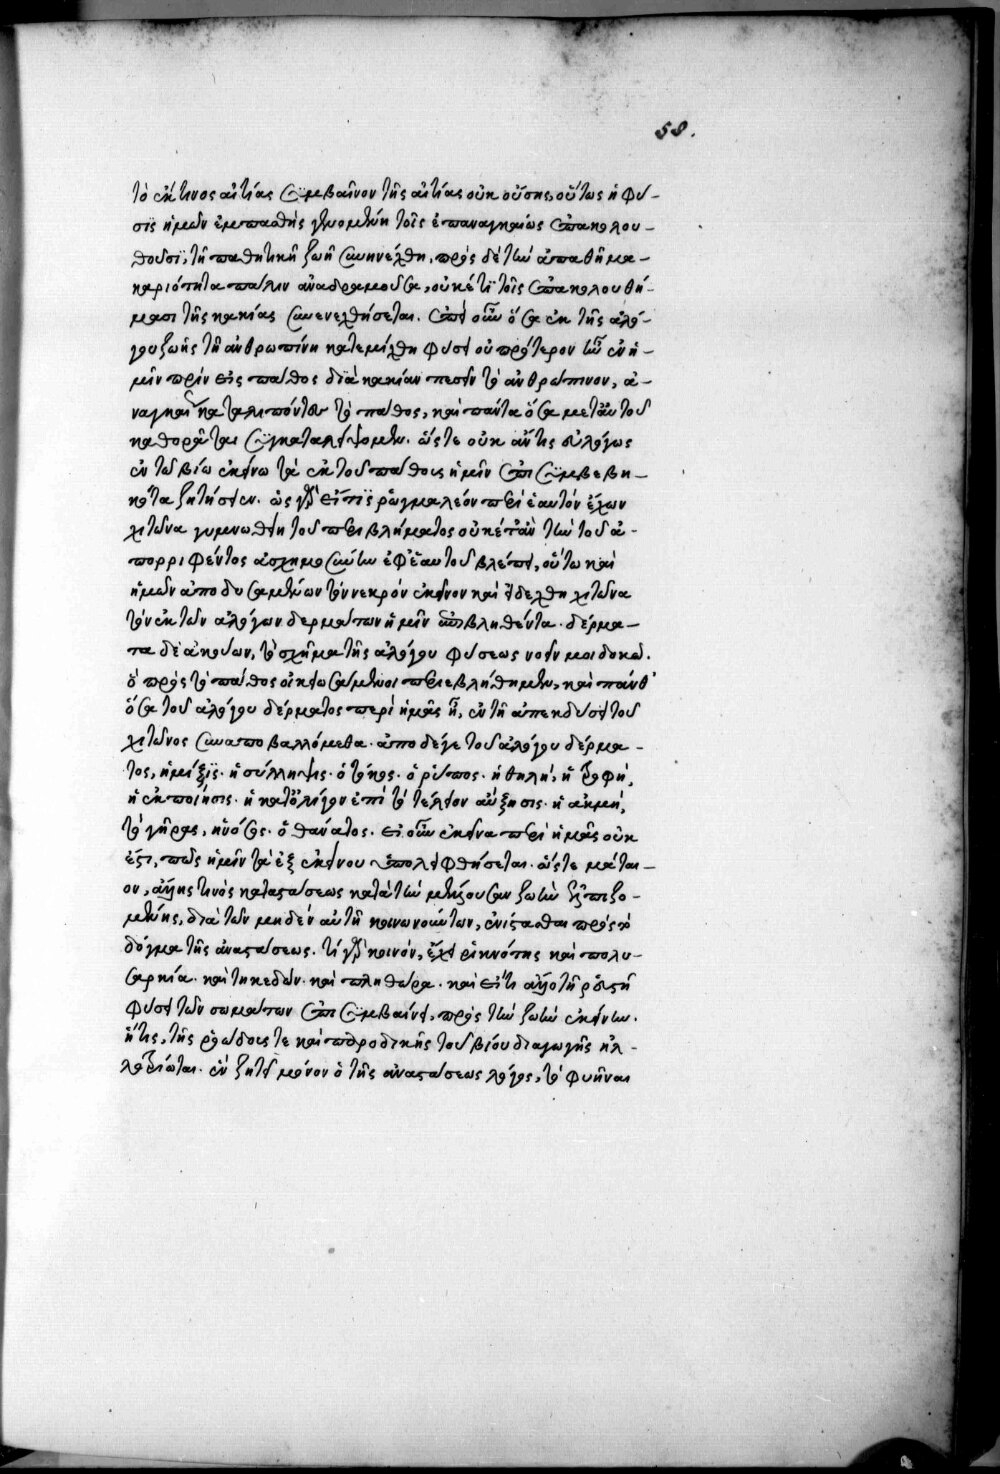 58.
τὸ ἐκ τινος αἰτίας συμβαῖνον τῆς αἰτίας οὐκ οὔσης, οὕτως ἡ φύ-
σις ἡμῶν ἐμπαθὴς γενομένη τοῖς ἐπαναγκαίως ἐπακολου-
θοῦσι, τῇ παθητικῇ ζωῇ συνηνέχθη, πρὸς δὲ τὴν ἀπαθῆ μα-
καριότητα πάλιν ἀναδραμοῦσα, οὐκέτι τοῖς ἐπακολουθή-
μασι τῆς κακίας συνενεχθήσεται. ἐπεὶ οὖν ὅσα ἐκ τῆς ἀλό-
γου ζωῆς τῇ ἀνθρωπίνῃ κατεμίχθη φύσει οὐ πρότερον ἦν ἐν ἡ-
μῖν πρὶν εἰς πάθος διὰ κακίαν πεσεῖν τὸ ἀνθρώπινον, ἀ-
ναγκαίως καταλιπόντες τὸ πάθος, καὶ πάντα ὅσα μετ' αὐτοῦ
καθορᾶται συγκαταλείψομεν. ὥστε οὐκ ἄν τις εὐλόγως
ἐν τῷ βίῳ ἐκείνῳ τὰ ἐκ τοῦ πάθους ἡμῖν ἐπισυμβεβη-
κότα ζητήσειεν. ὡς γὰρ εἴ τις ῥωγμαλέον περὶ ἑαυτὸν ἔχων
χιτῶνα γυμνωθείη τοῦ περιβλήματος οὐκέτ' ἂν τὴν τοῦ ἀ-
πορριφέντος ἀσχημοσύνην ἐφ' ἑαυτοῦ βλέποι, οὕτω καὶ
ἡμῶν ἀποδυσαμένων τὸν νεκρὸν ἐκεῖνον καὶ εἰδεχθῆ χιτῶνα
τὸν ἐκ τῶν ἀλόγων δερμάτων ἡμῖν ἐπιβληθέντα. δέρμα-
τα δὲ ἀκούων, τὸ σχῆμα τῆς ἀλόγου φύσεως νοεῖν μοι δοκῶ.
ὃ πρὸς τὸ πάθος οἰκειωσάμενοι περιεβλήθημεν, καὶ πάνθ'
ὅσα τοῦ ἀλόγου δέρματος περὶ ἡμᾶς ἦν, ἐν τῇ ἀπεκδύσει τοῦ
χιτῶνος συναποβαλλόμεθα. ἀπὸ δέ γε τοῦ ἀλόγου δέρμα-
τος, ἡ μίξις. ἡ σύλληψις. ὁ τόκος. ὁ ῥύπος. ἡ θηλή, ἡ τροφή,
ἡ ἐκποίησις. ἡ κατ' ὀλίγον ἐπὶ τὸ τέλειον αὔξησις. ἡ ἀκμή,
τὸ γῆρας, ἡ νόσος. ὁ θάνατος. εἰ οὖν ἐκεῖνα περὶ ἡμᾶς οὐκ
ἔσται, πῶς ἡμῖν τὰ ἐξ ἐκείνου ὑπολειφθήσεται. ὥστε μάται-
ον, ἄλλης τινὸς καταστάσεως κατὰ τὴν μέλλουσαν ζωὴν ἐλπιζο-
μένης, διὰ τῶν μηδὲν αὐτῇ κοινωνούντων, ἐνίστασθαι πρὸς τὸ
δόγμα τῆς ἀναστάσεως. τί γὰρ κοινὸν, ἔχει ῥικνότης καὶ πολυ-
σαρκία. καὶ τηκεδών. καὶ πληθώρα. καὶ εἴ τι ἄλλο τῇ ῥευστῇ
φύσει τῶν σωμάτων ἐπισυμβαίνει, πρὸς τὴν ζωὴν ἐκείνην.
ἥτις, τῆς ῥοώδους τε καὶ παροδικῆς τοῦ βίου διαγωγῆς ἠλ-
λοτρίωται. ἓν ζητεῖ μόνον ὁ τῆς ἀναστάσεως λόγος, τὸ φυῆναι